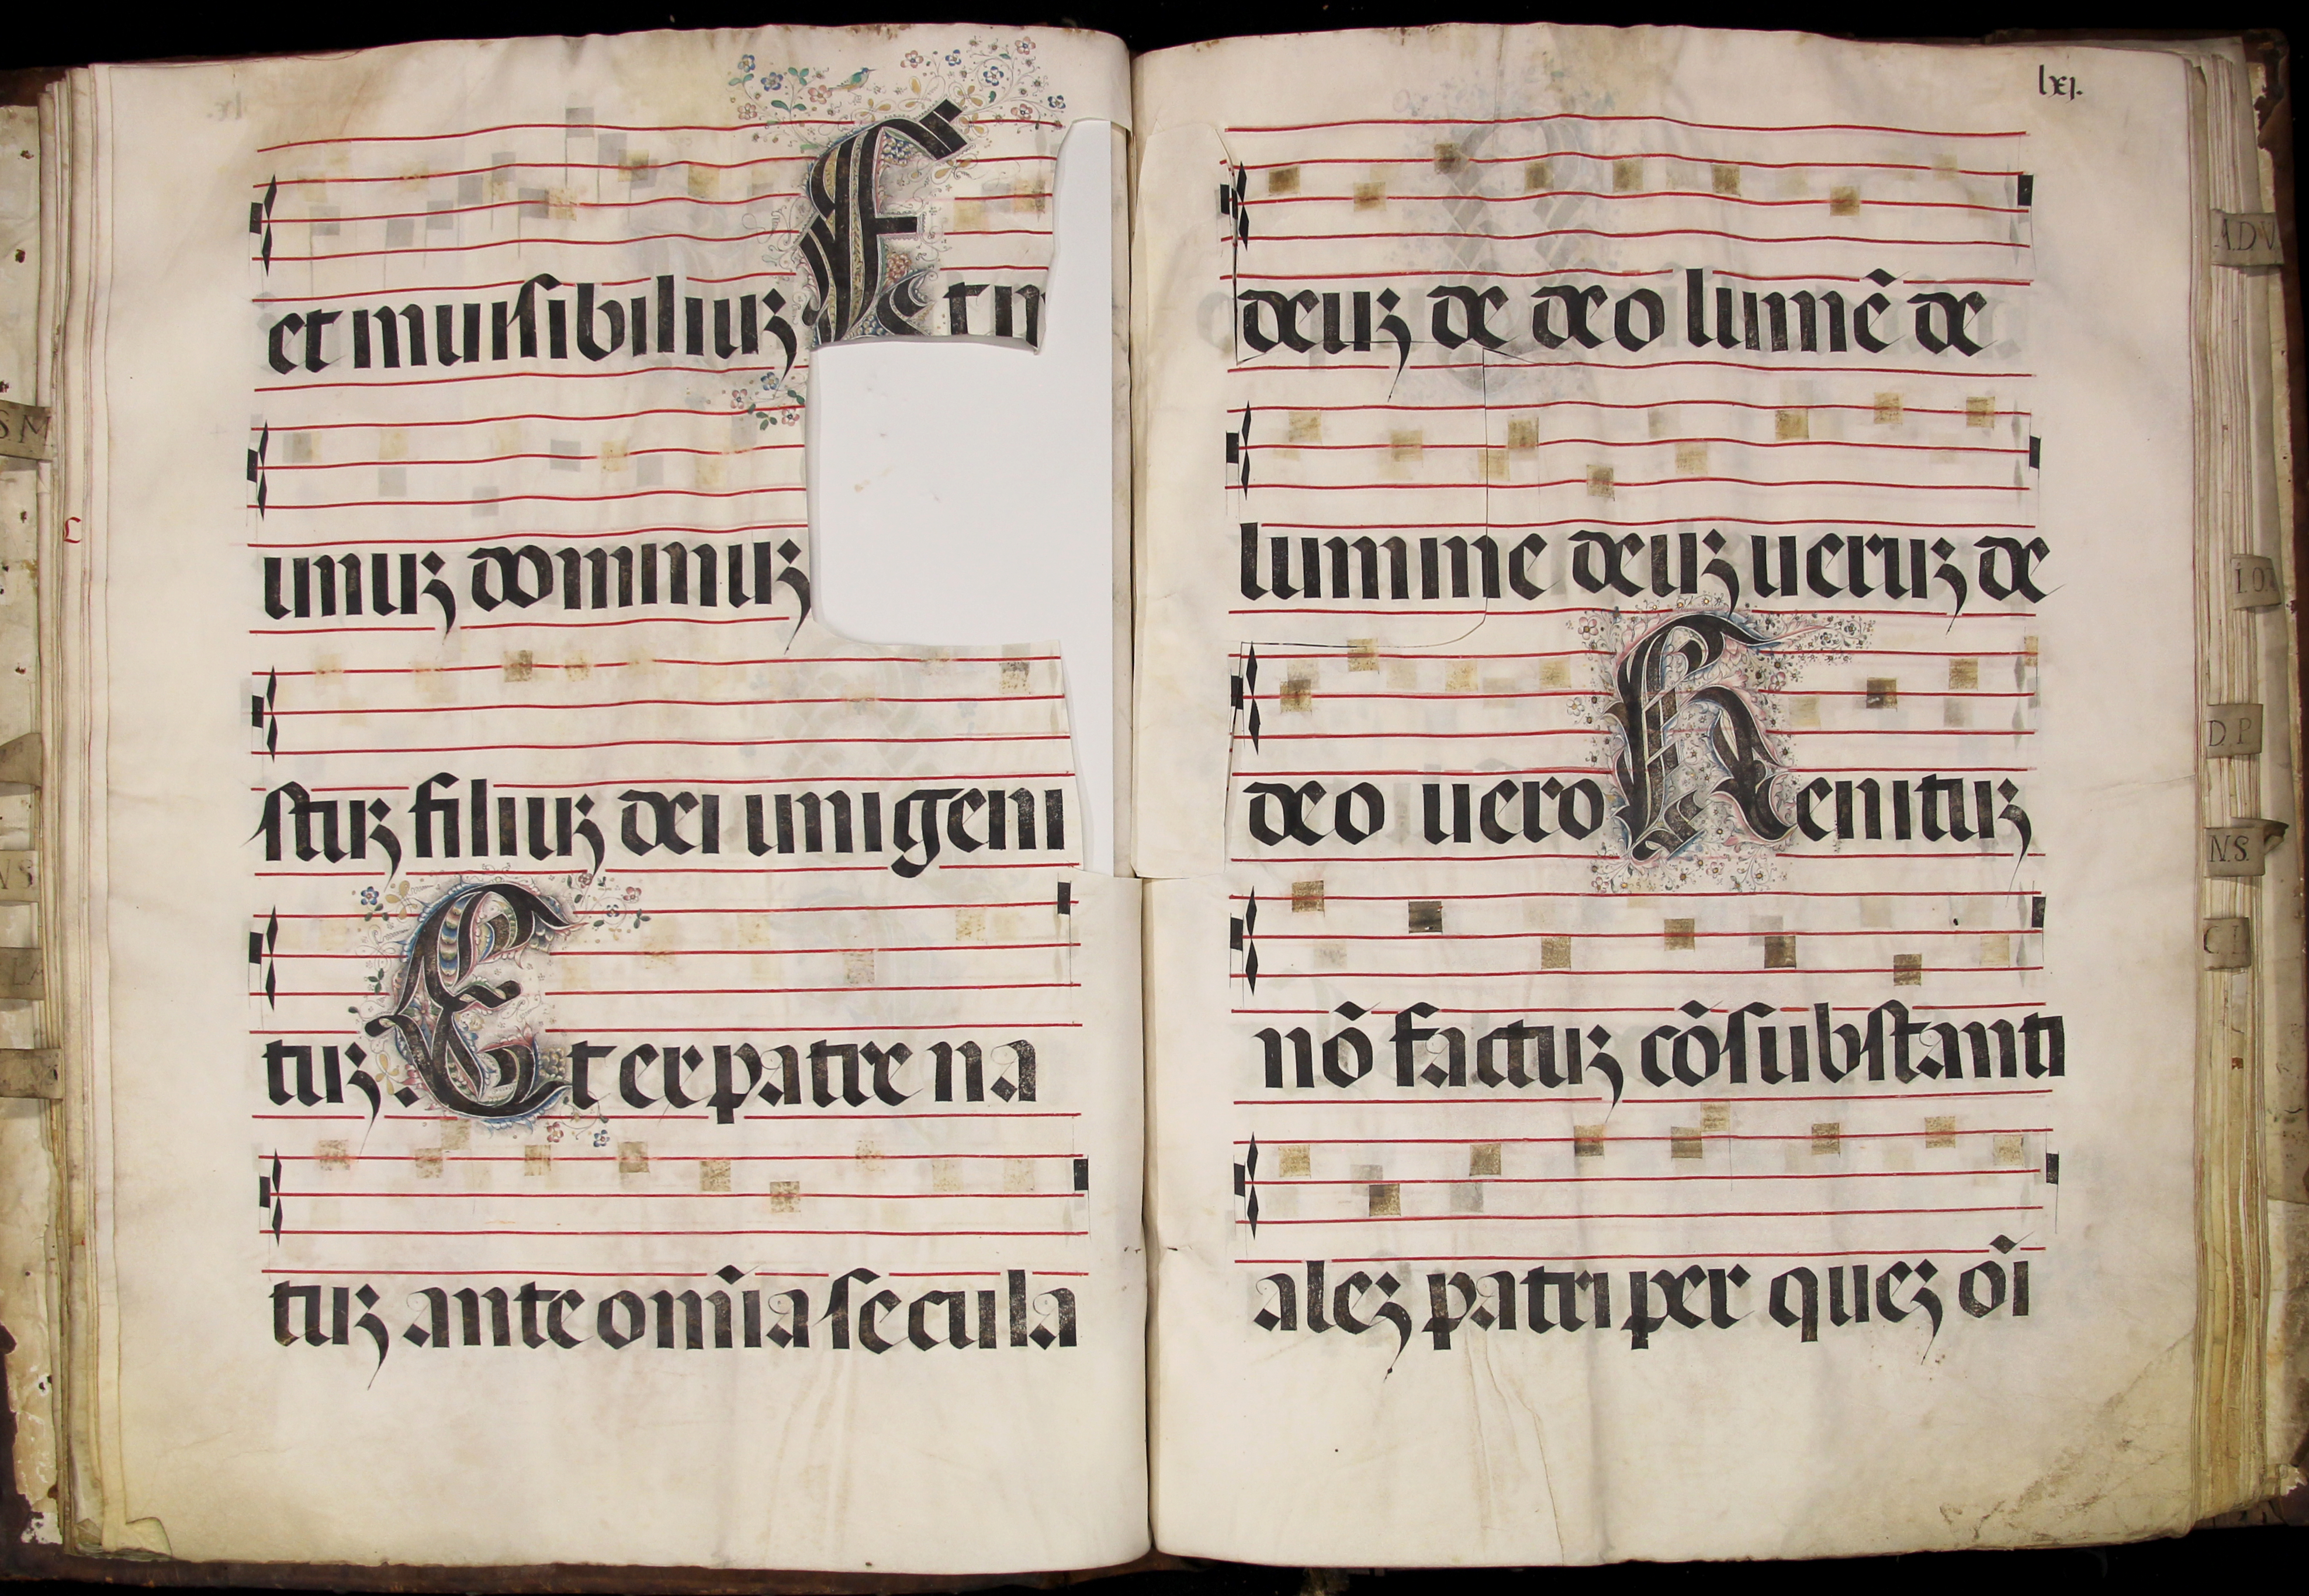 et inuisibiliuꝫ Et in
unuꝫ dominuꝫ
stuꝫ filiuꝫ dei unigeni
tuꝫ. Et ex patre na
tuꝫ ante om̄ia secula
lxj.
deuꝫ de deo lumē de
lumine deuꝫ ueruꝫ de
deo uero Genituꝫ
nō factuꝫ cōsubstanti
aleꝫ patri per queꝫ oī
ADV
D P
N.S.
C I
S M